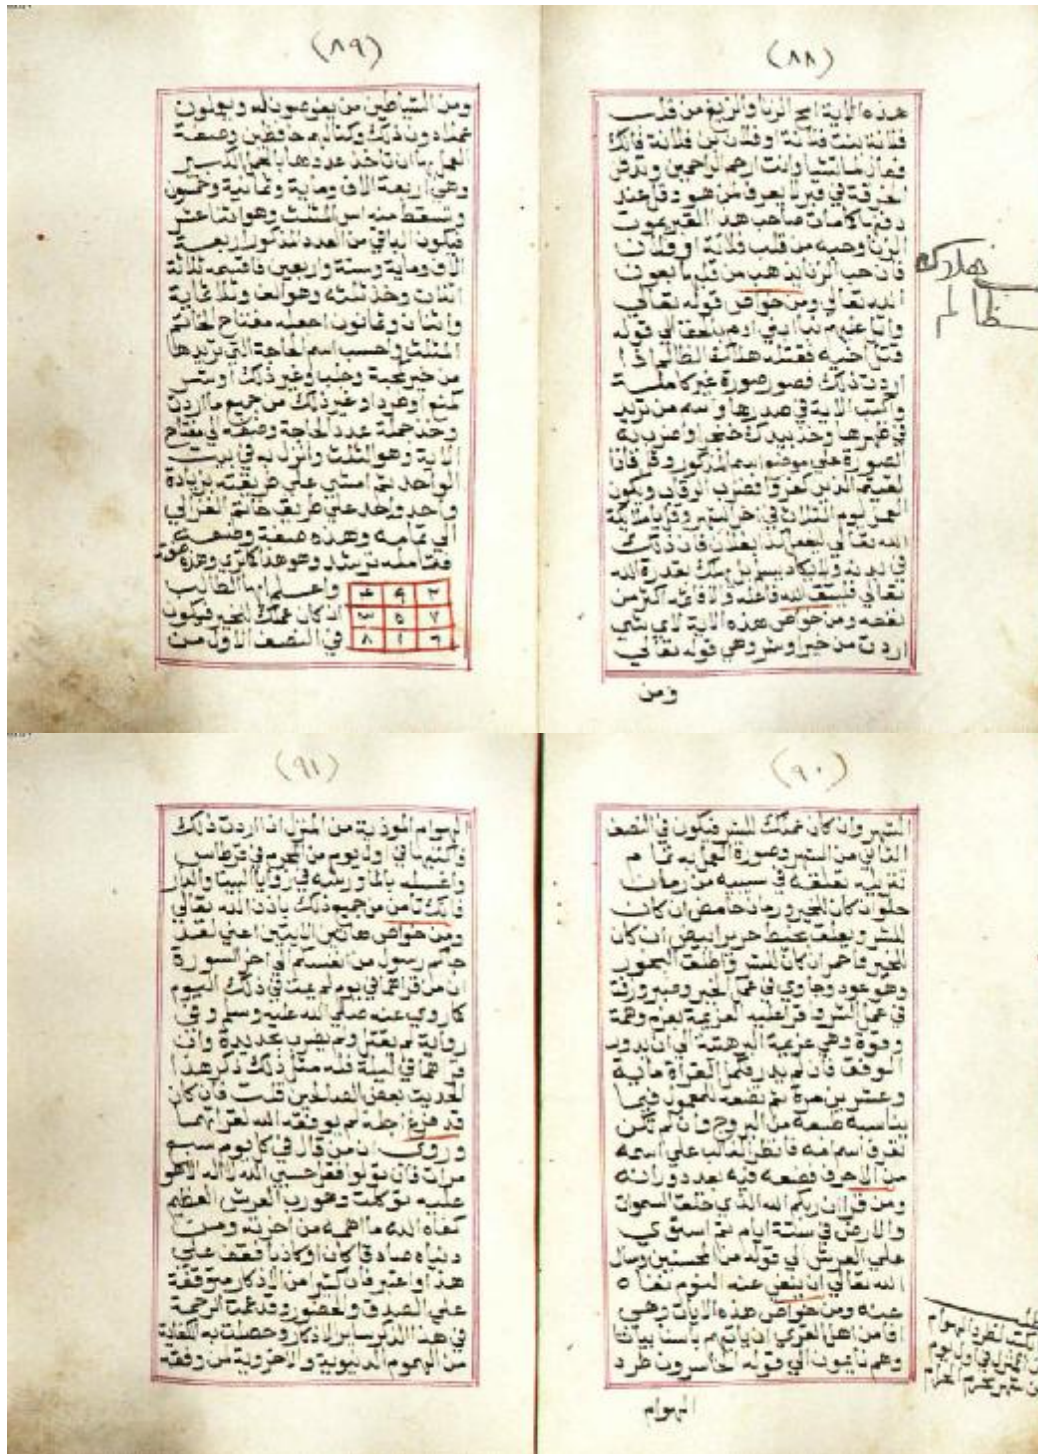 (٨٨)
هذه الاية امح الزنا والزيغ من قلب
فلانة بنت فلانة او فلان بن فلانة فانك
فعال لما تشا وانت ارحم الراحمين وتدفن
الخرقة في قبر لا يعرف لمن هو وقل عند
دفنها كما مات صاحب هذا القبر يموت
الزنا وحبه من قلب فلانة او فلان
فان حب الزنا يذهب من قلبه بعون
الله تعالي ومن خواص قوله تعالي
واتل عليهم نبا ابني ادم بالحق الي قوله
قتل اخيه فقتله هلاك الظالم اذا
اردت ذلك فصور صورة غير كاملة
واكتب الاية في صدرها واسم من تريد
في ظهرها وخذ بيدك خنجر واضرب به
الصورة علي موضع اسم المذكور وقل فاذا
لقيتم الذين كفروا فضرب الرقاب ويكون
العمل يوم الثلاث في اخر الشهر وقل يا ملايكة
الله تعالي افعلوا كذا بفلان فان ذلك
في بدنه ولا يكاد يسلم بل يهلك بقدرة الله
تعالي فليتق الله فاعله والا فاثمه اكثر من
نفعه ومن خواص هذه الاية لاي شي
اردت من خير او شر وهي قوله تعالي
ومن
هلاك
ظالم
(٨٩)
ومن الشياطين من يغوصون له ويعملون
عملا دون ذلك وكنا لهم حافظين وصفة
العمل بها ان تاخذ عددها بالجمل الكبير
وهي اربعة الاف وماية وثمانية وخمسون
وتسقط منه اس المثلث وهو اثنا عشر
فيكون الباقي من العدد المذكور اربعة
الاف وماية وستة واربعين فاقسمه ثلاثة
اثلاث وخذ ثلثه وهو الف وثلاثماية
واثنان وثمانون اجعله مفتاح الخاتم
المثلث واحسب اسم الحاجة التي تريدها
من خير محبة وجلبا وغير ذلك او شر
كمنع او طرد او غير ذلك من جميع ما اردت
وخذ جملة عدد الحاجة وضفه الي مفتاح
الاية وهو الثلث وانزل به في بيت
الواحد ثم امشي علي طريقته بزيادة
واحد واحد علي طريق خاتم الغزالي
الي تمامه وهذه صفة وضعه
فتامله ترشد وهو هذا كما تري وهذه صورته
٢ ٩ ٤ واعلم ايها الطالب
٧ ٥ ٣ ان كان عملك للخير فيكون
٦ ١ ٨ في النصف الاول من
(٩٠)
الشهر وان كان عملك للشر فيكون في النصف
الثاني من الشهر وصورة العمل به تمام
تنزيله تعلقه في سيبيه من رمان
حلو ان كان للخير ورمان حامض ان كان
للشر ويعلق بخيط حرير ابيض ان كان
للخير واحمر ان كان للشر واطلق البخور
وهو عود وجاوي في عمل الخير وصبر وزفة
في عمل الشر واقرا عليه العزيمة بعزم وهمة
وقوة وهي عزيمة البرهتية الي ان يدور
الوفق فان لم يدر فكمل القراة ماية
وعشرين مرة ثم تضعه للمعمول فيما
يناسبه طبعه من البروج وان لم تكن
تعرف اسم امه فانظر الغالب علي اسمه
من الاحرف فضعه فيه بعد دورانه
ومن قرا ان ربكم الله الذي خلق السموات
والارض في ستة ايام ثم استوي
علي العرش الي قوله من المحسنين وسال
الله تعالي ان ينفي عنه النوم نفاه
عنه ومن خواص هذه الايات وهي
افامن اهل القري ان ياتيهم باسنا بياتا
وهم نايمون الي قوله الخاسرون طرد
الهوام
لطرد الهوام
المنزل في اول يوم
من شهر محرم الحرام
(٩١)
الهوام الموذية من المنزل اذا اردت ذلك
فاكتبها في اول يوم من المحرم في قرطاس
واغسله بالماء ورشه في زوايا البيت والدار
فانك تامن من جميع ذلك باذن الله تعالي
ومن خواص هاتين الايتين اعني لقد
جاكم رسول من انفسكم الي اخر السورة
ان من قراهما في يوم لم يمت في ذلك اليوم
كما روي عنه صلي الله عليه وسلم وفي
رواية لم يقتل ولم يضرب بحديدة وان
قراهما في ليلة فله مثل ذلك ذكر هذا
الحديث بعض الصالحين قلت فان كان
قد فرغ اجله لم يوفقه الله لقراتهما
وروي ان من قال في كل يوم سبع
مرات فان تولوا فقل حسبي الله لا اله الا هو
عليه توكلت وهو رب العرش العظيم
كفاه الله ما اهمه من اخرته ومن
دنياه صادقا كان او كاذبا فقف علي
هذا واعتبر فان كثيرا من الاذكار متوقفة
علي الصدق والحضور وقد عمت الرحمة
في هذا الذكر ساير الاذكار وحصلت به الكفاية
من الهموم الدنيوية والاخروية من وفقه